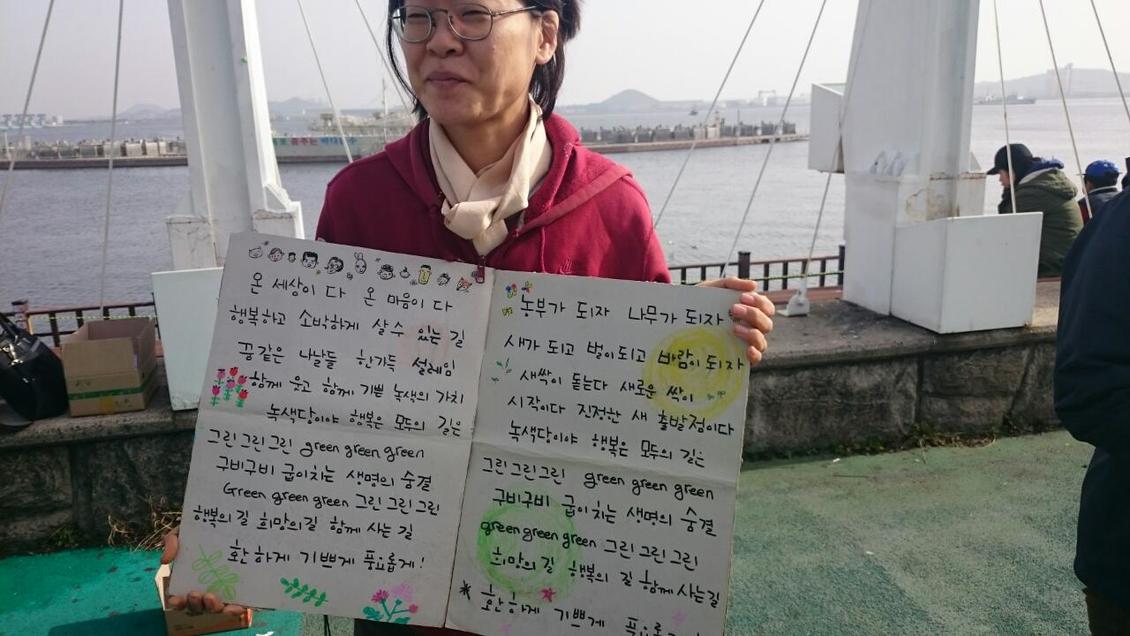 온 세상이 다 온 마음이 다
행복하고 소박하게 살수 있는 길
꿈같은 나날들 한가득 설레임
함께 웃고 함께 기쁜 녹색의 가치
녹색당이야 행복은 모두의 길은
그린 그린 그린 green green green
구비구비 굽이치는 생명의 숨결
Green green green 그린 그린 그린
행복의 길 희망의 길 함께 사는 길
환하게 기쁘게 풍요롭게!
농부가 되자 나무가 되자
새가 되고 벌이 되고 바람이 되자
새싹이 돋는다 새로운 싹이
시작이다 진정한 새 출발점이다
녹색당이야 행복은 모두의 길은
그린 그린 그린 green green green
구비구비 굽이치는 생명의 숨결
green green green 그린 그린 그린
희망의 길 행복의 길 함께 사는 길
환하게 기쁘게